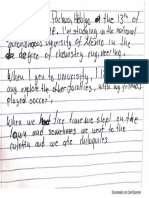 Pachuca, Hidalgo, the 13th of
I'm studying in the national
autonomous university of Mexico in the
degree of chemistry engineering.
When I go to university, I
explore the other faculties, with my friends
played soccer.
When we had free time we slept on the
lawn and sometimes we went to the
cafeteria and we ate chilaquiles
Scanned with CamScanner